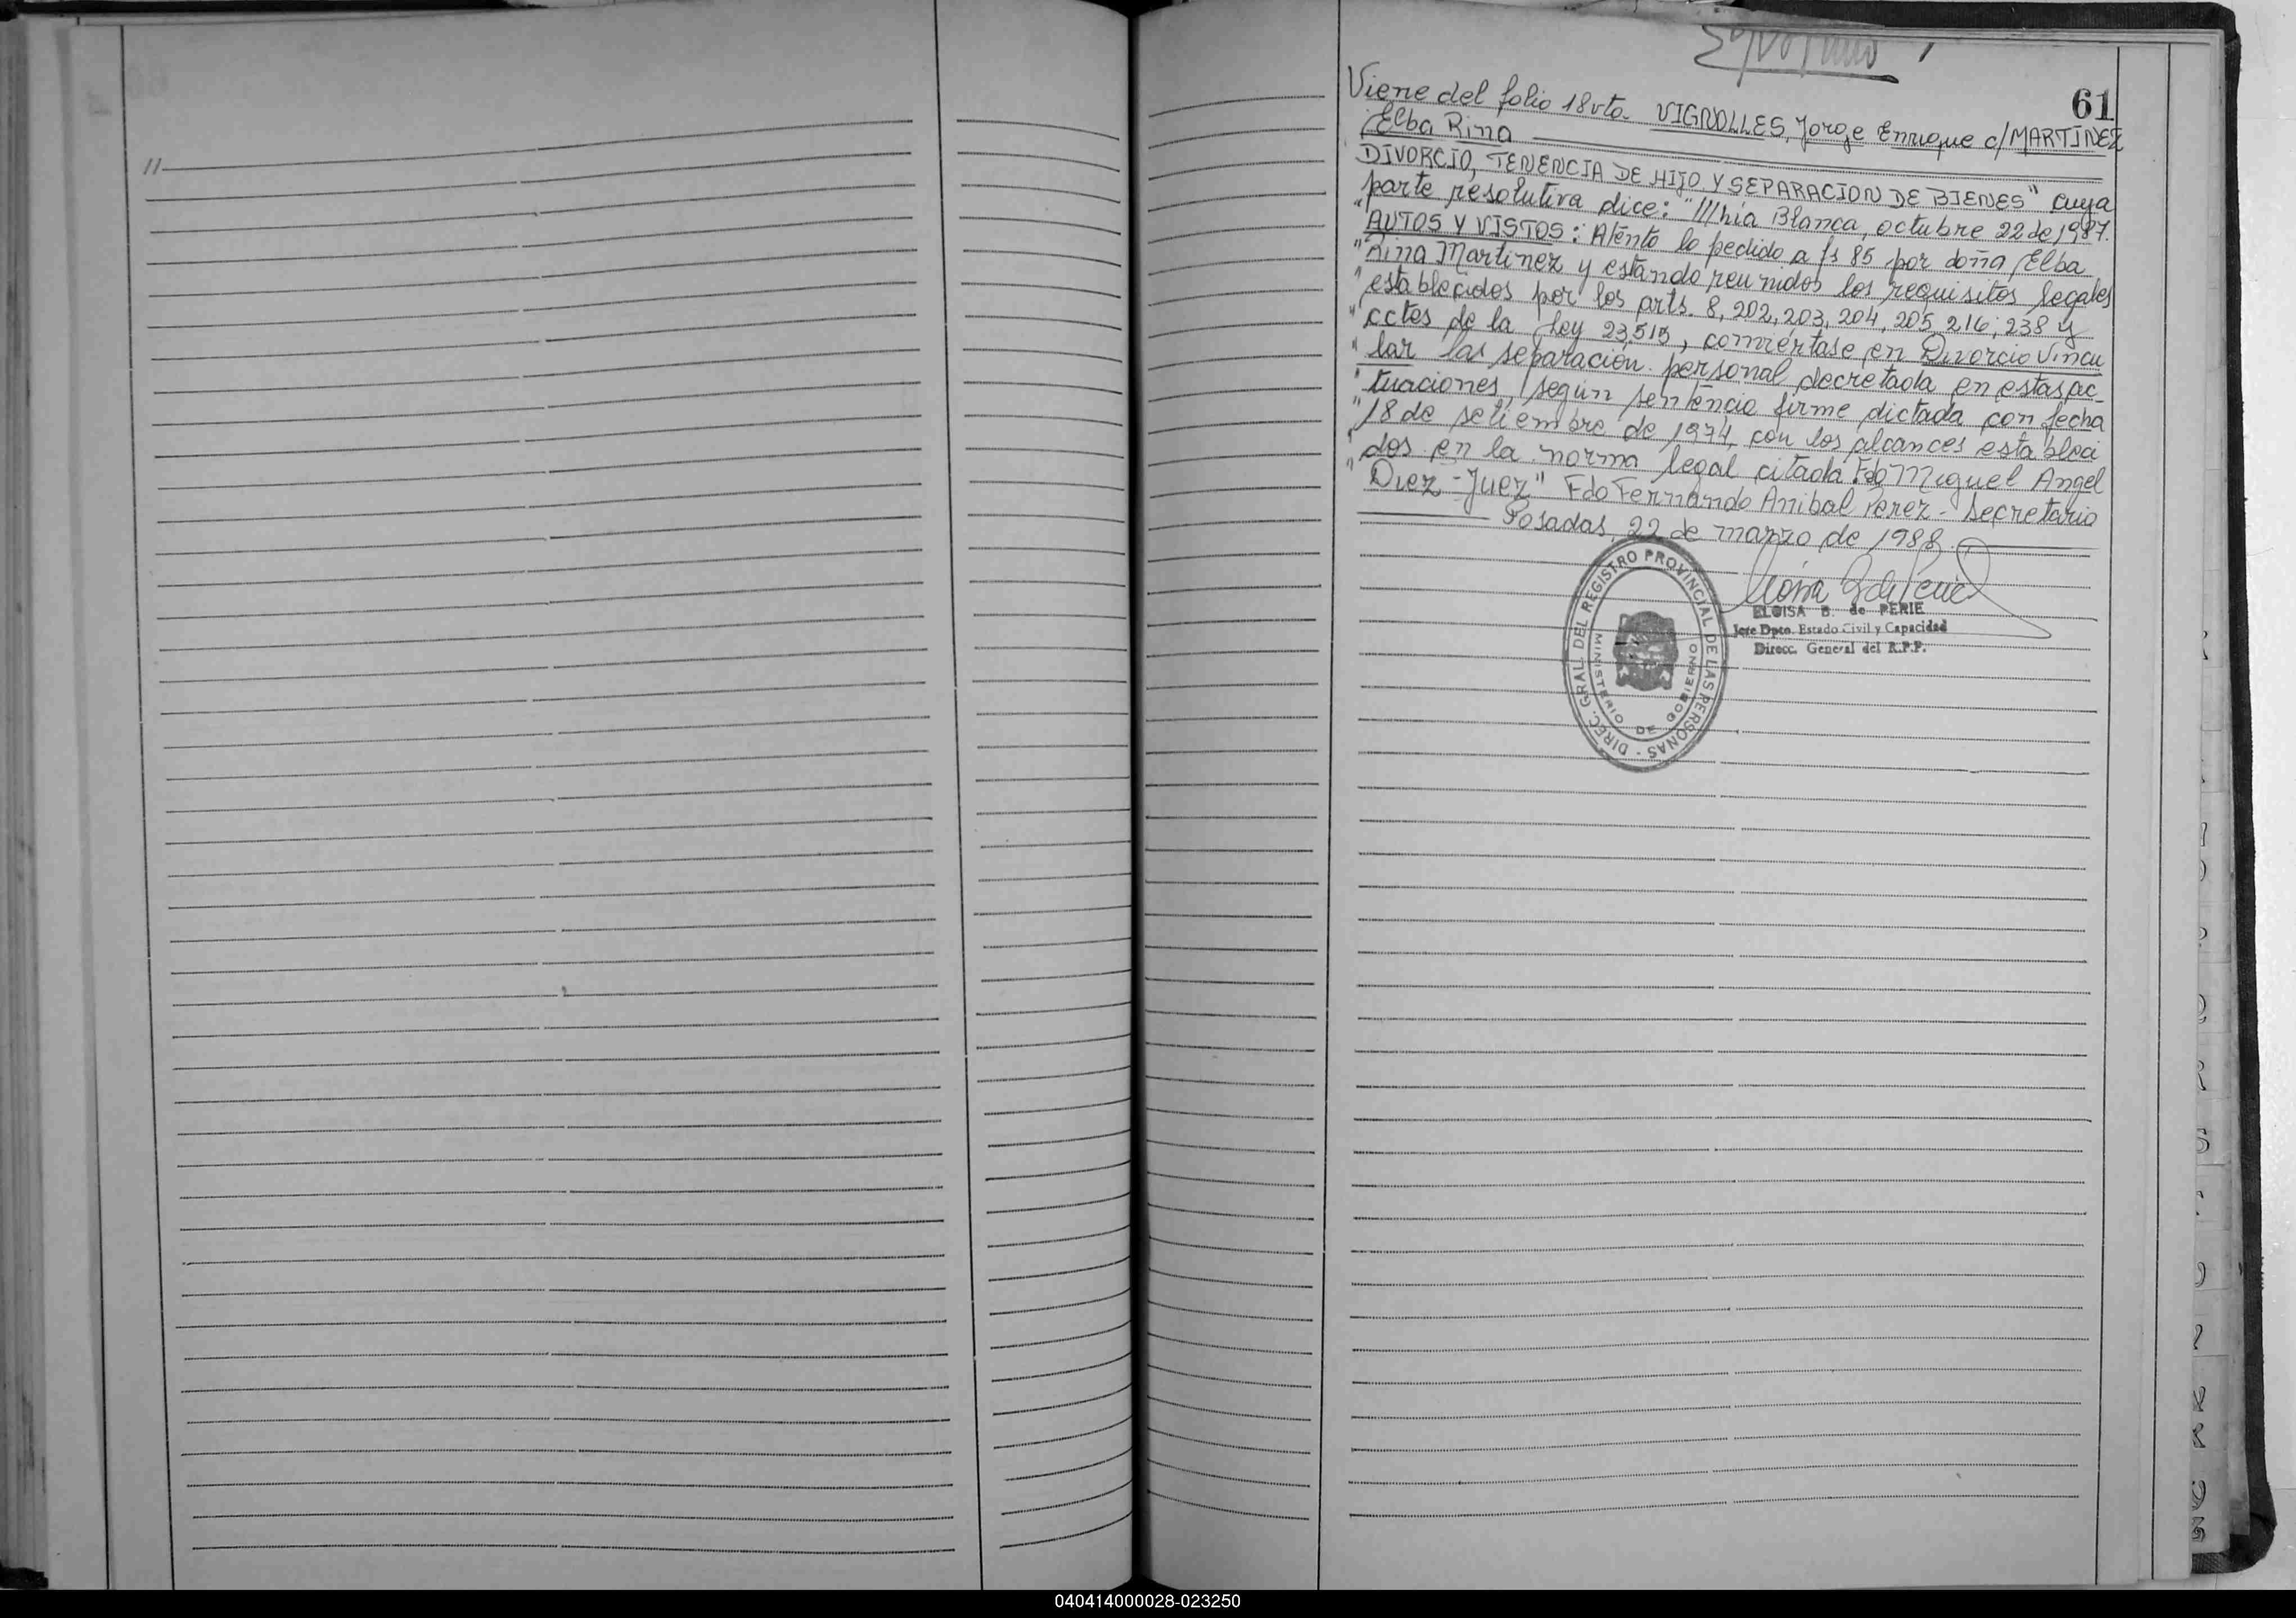 11
61
Viene del folio 18vta. VIGNOLLES, Jorge Enrique c/MARTÍNEZ
Elba Rina
DIVORCIO, TENENCIA DE HIJO Y SEPARACION DE BIENES" cuya
parte resolutiva dice: "///hía Blanca, octubre 22 de 1987.
"AUTOS Y VISTOS: Atento lo pedido a fs 85 por doña Elba
"Rina Martinez y estando reunidos los requisitos legales
"establecidos por los arts. 8, 202, 203, 204, 205, 216, 238 y
"cctes de la Ley 23,515, conviértase en Divorcio Vincu
"lar la separación personal decretada en estas ac_
"tuaciones, según sentencia firme dictada con fecha
"18 de setiembre de 1974, con los alcances estableci
"dos en la norma legal citada Fdo Miguel Angel
"Diez - Juez" Fdo Fernando Anibal Perez - Secretario
Posadas, 22 de marzo de 1988.
ELOISA B. de PERIE
Jefe Dpto. Estado Civil y Capacidad
Direcc. General del R.P.P.
DIREC. GRAL. DEL REGISTRO PROVINCIAL DE LAS PERSONAS
MINISTERIO DE GOBIERNO
040414000028-023250